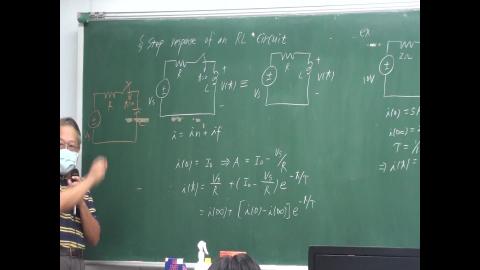 § Step response of an RL Circuit
ex
R
t=0
L
V(t)
Vs
≡
R
L
V(t)
Vs
R
Vs
2Ω
10V
i = in + if
i(0) = I₀ ⇒ A = I₀ - Vs/R
i(t) = Vs/R + (I₀ - Vs/R) e^-t/τ
= i(∞) + [i(0) - i(∞)] e^-t/τ
i(0) = 5A
i(∞) =
τ =
⇒ i(t) =